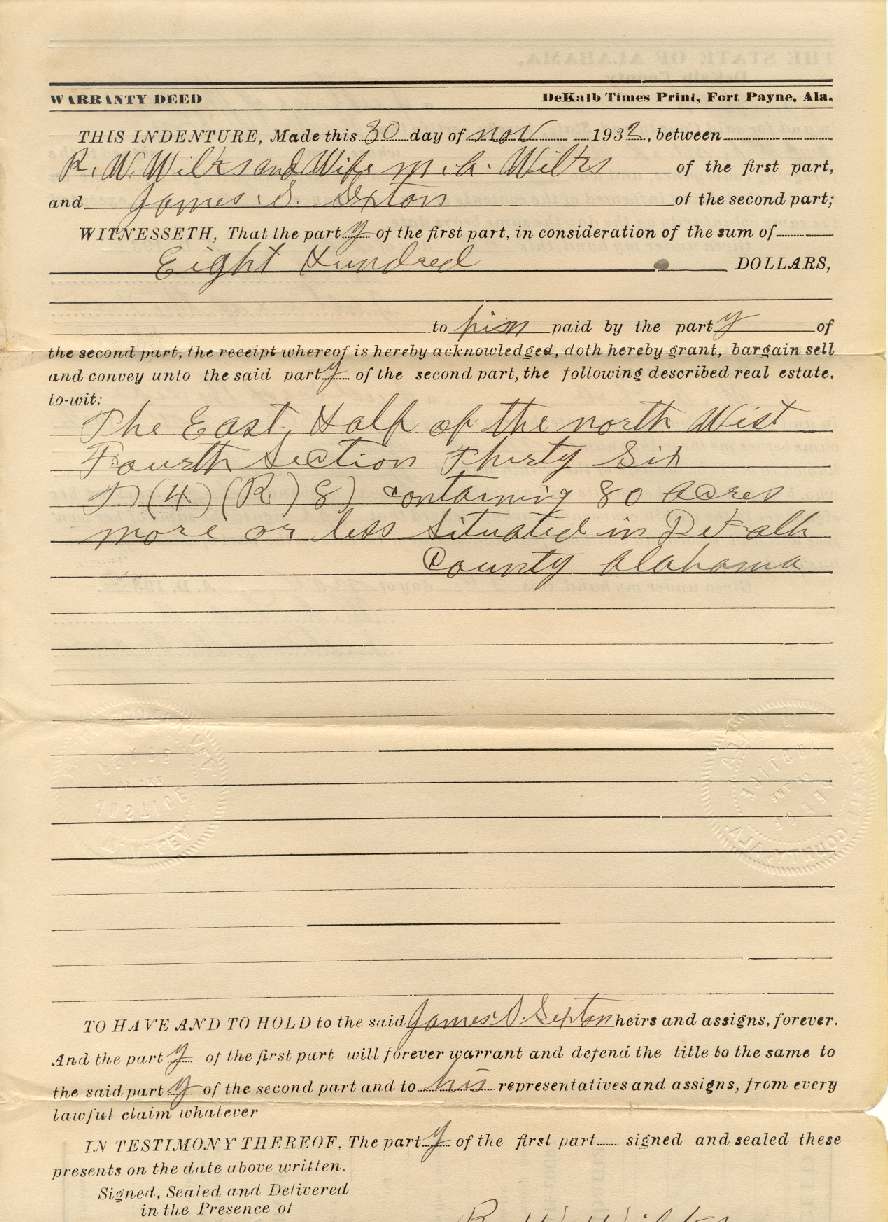 THE STATE OF ALABAMA,
DeKalb County
WARRANTY DEED DeKalb Times Print, Fort Payne, Ala.
THIS INDENTURE, Made this 30 day of nov 1932, between
R. W. Wilks and Wife m. a. Wilks of the first part,
and James S. Sexton of the second part;
WITNESSETH, That the party of the first part, in consideration of the sum of
Eight Hundred DOLLARS,
to him paid by the party of
the second part, the receipt whereof is hereby acknowledged, doth hereby grant, bargain sell
and convey unto the said party of the second part, the following described real estate,
to-wit:
The East, Half of the north West
Fourth Section Thirty Six
T) (4) (R) 8) containing 80 acres
more or less Situated in DeKalb
County Alabama
TO HAVE AND TO HOLD to the said James S. Sexton heirs and assigns, forever.
And the party of the first part will forever warrant and defend the title to the same to
the said party of the second part and to his representatives and assigns, from every
lawful claim whatever
IN TESTIMONY THEREOF, The party of the first part signed and sealed these
presents on the date above written.
Signed, Sealed and Delivered
in the Presence of
R. W. Wilks